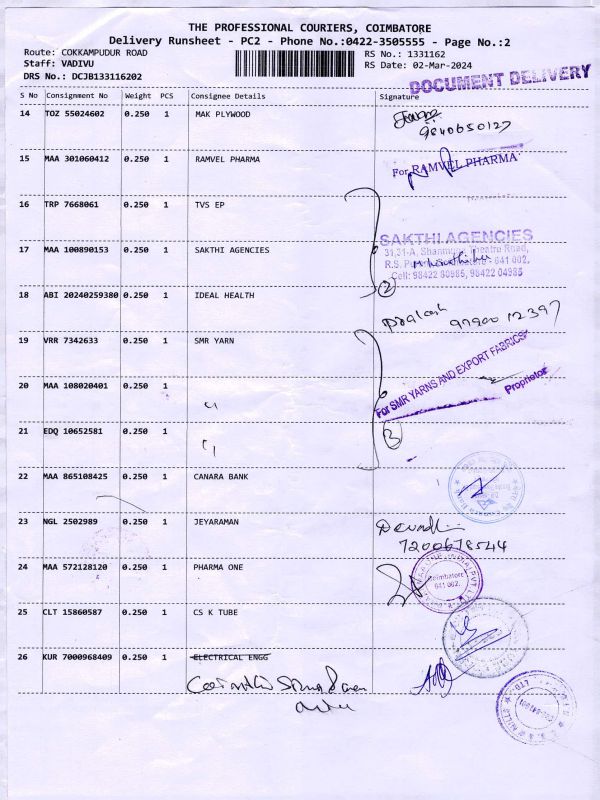 THE PROFESSIONAL COURIERS, COIMBATORE
Delivery Runsheet - PC2 - Phone No.:0422-3505555 - Page No.:2
Route: COKKAMPUDUR ROAD
RS No.: 1331162
Staff: VADIVU
RS Date: 02-Mar-2024
DRS No.: DCJB133116202
DOCUMENT DELIVERY
S No Consignment No Weight PCS Consignee Details Signature
14 TOZ 55024602 0.250 1 MAK PLYWOOD
9840650127
15 MAA 301060412 0.250 1 RAMVEL PHARMA
For RAMVEL PHARMA
16 TRP 7668061 0.250 1 TVS EP
17 MAA 100890153 0.250 1 SAKTHI AGENCIES
SAKTHI AGENCIES
31,31-A, Shanmuga Theatre Road,
641 002.
Cell: 98422 80985, 98422 04985
2
18 ABI 20240259380 0.250 1 IDEAL HEALTH
Prakash 97900 12397
19 VRR 7342633 0.250 1 SMR YARN
For SMR YARNS AND EXPORT FABRICS
Proprietor
20 MAA 108020401 0.250 1 "
21 EDQ 10652581 0.250 1 "
3
22 MAA 865108425 0.250 1 CANARA BANK
23 NGL 2502989 0.250 1 JEYARAMAN
7200678544
24 MAA 572128120 0.250 1 PHARMA ONE
Coimbatore
641 002.
25 CLT 15860587 0.250 1 CS K TUBE
26 KUR 7000968409 0.250 1 ELECTRICAL ENGG